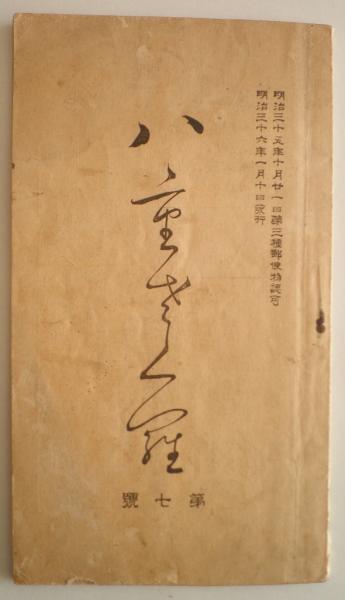 明治三十五年十月廿一日第三種郵便物認可
明治三十六年一月十日発行
八重さくら
第七號